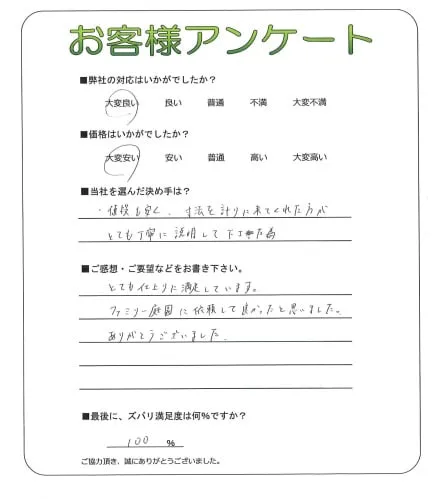 お客様アンケート
■弊社の対応はいかがでしたか?
大変良い 良い 普通 不満 大変不満
■価格はいかがでしたか?
大変安い 安い 普通 高い 大変高い
■当社を選んだ決め手は?
・値段も安く、寸法を計りに来てくれた方が
とても丁寧に説明して下さった為
■ご感想・ご要望などをお書き下さい。
とても仕上りに満足しています。
ファミリー庭園に依頼して良かったと思いました。
ありがとうございました。
■最後に、ズバリ満足度は何%ですか?
100 %
ご協力頂き、誠にありがとうございました。